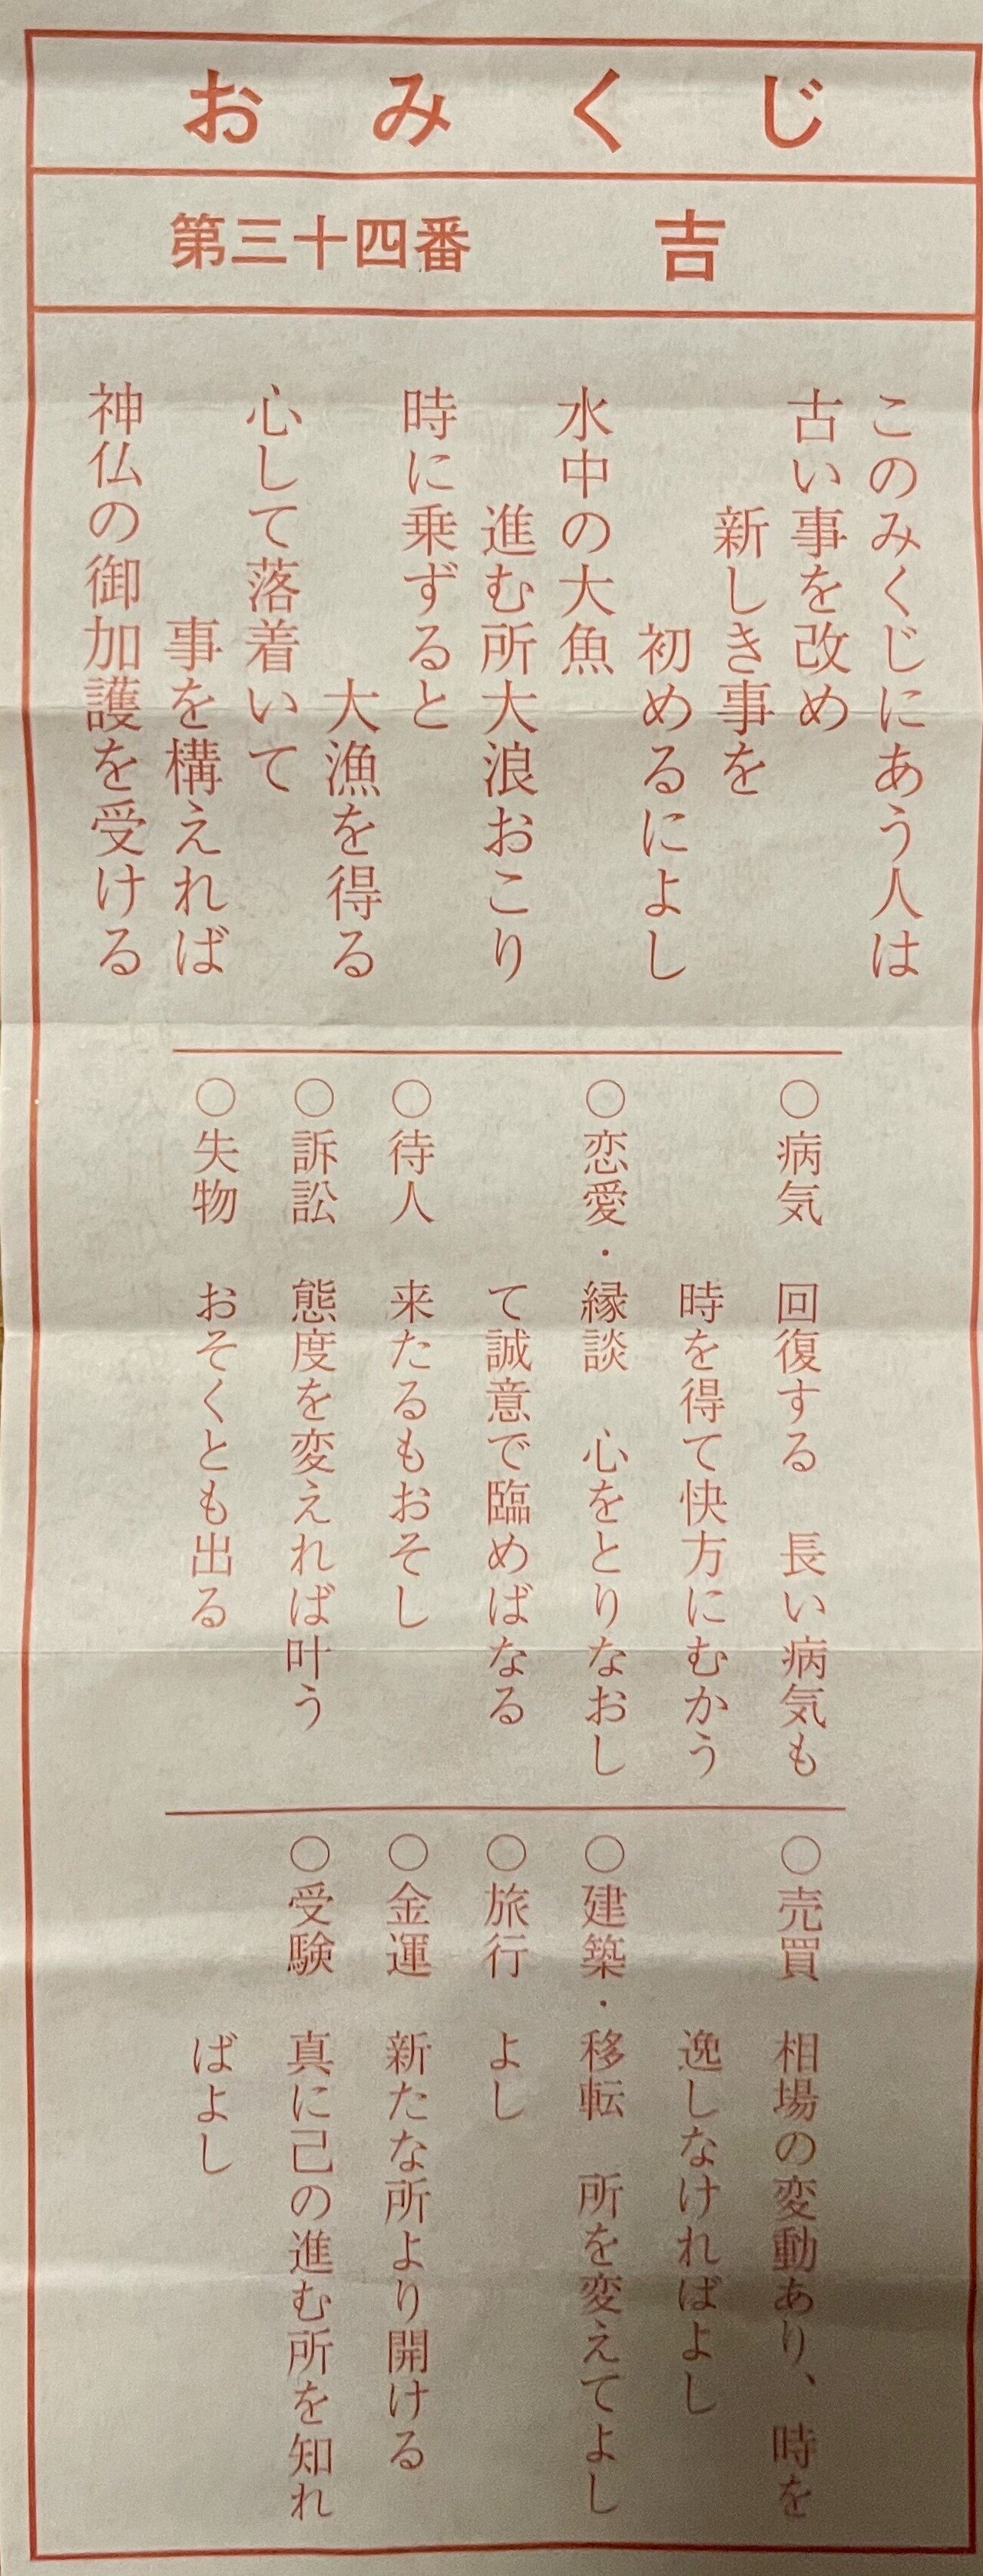 おみくじ
第三十四番 吉
このみくじにあう人は
古い事を改め
新しき事を
初めるによよし
水中の大魚
進む所大浪おこり
時に乗ずると
大漁を得る
心して落着いて
事を構えれば
神仏の御加護を受ける
○病気 回復する 長い病気も
時を得て快方にむかう
○恋愛・縁談 心をとりなおし
て誠意で臨めばなる
○待人 来たるもおそし
○訴訟 態度を変えれば叶う
○失物 おそくとも出る
○売買 相場の変動あり、時を
逸しなければよし
○建築・移転 所を変えてよし
○旅行 よし
○金運 新たな所より開ける
○受験 真に己の進む所を知れ
ばよし